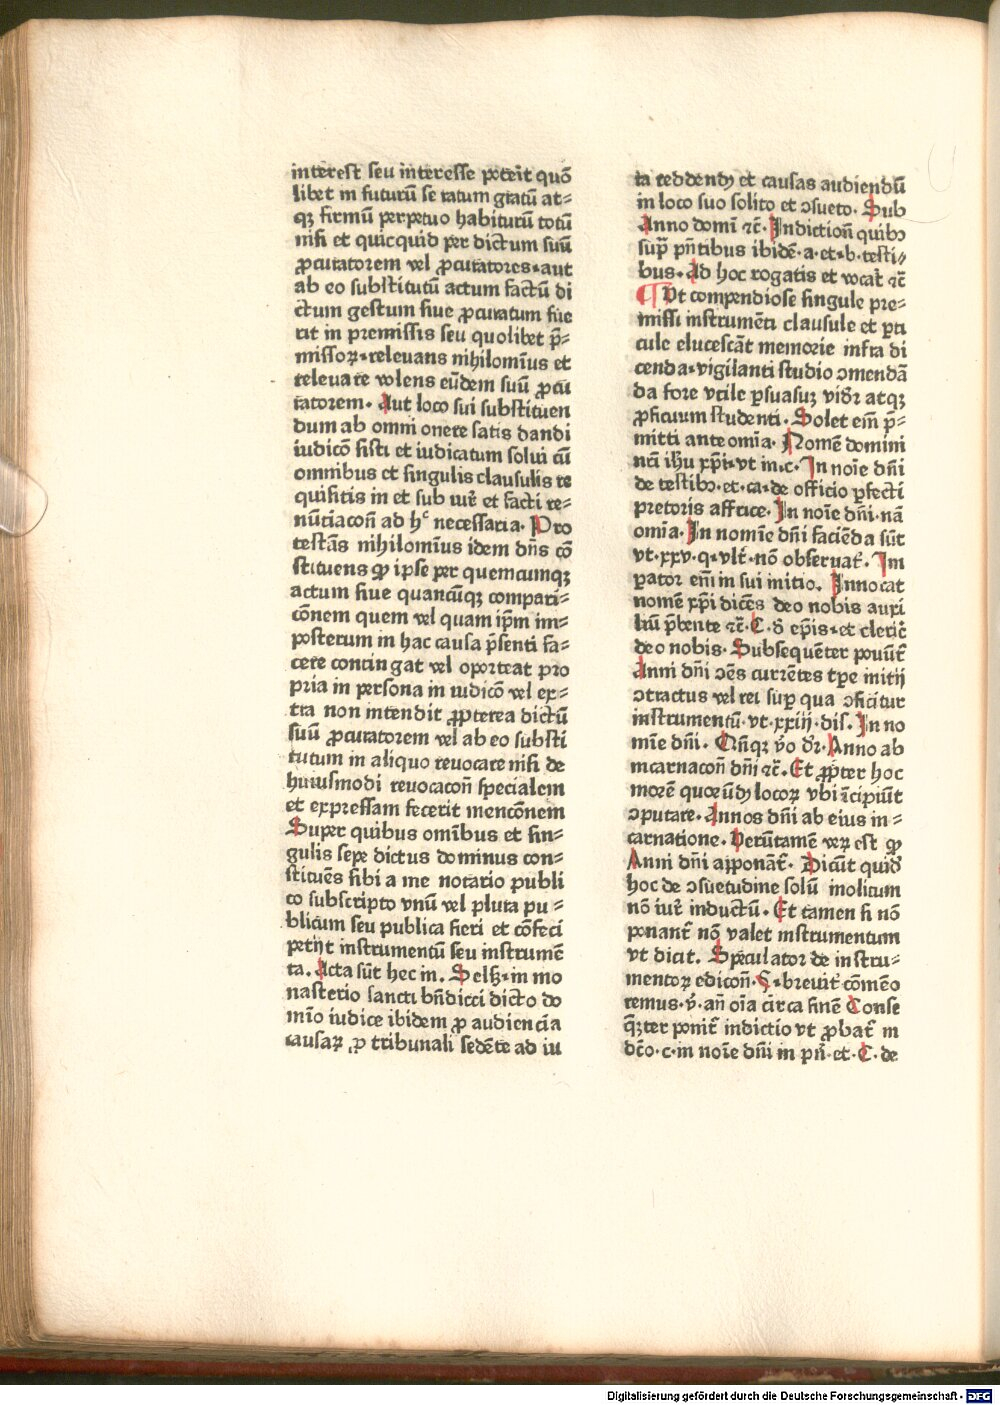 interest seu interesse poterit quō
libet in futurū se ratum gratū at⸗
qꝫ firmū perpetuo habiturū totū
nisi et quicquid per dictum suū
ꝓcuratorem vel ꝓcuratores·aut
ab eo substitutū actum factū di
ctum gestum siue ꝓcuratum fue
rit in premissis seu quolibet p̄⸗
missoꝝ·releuans nihilomīus et
releuare volens eūdem suū ꝓcu
ratorem· Aut loco sui substituen
dum ab omni onere satis dandi
iudicō sisti et iudicatum solui cū
omnibus et singulis clausulis re
quisitis in et sub iur̄ et facti re⸗
nūtiacoñ ad hͨ necessaria· Pro
testās nihilomīus idem dn̄s cō
stituens ꝙ ipse per quemcumqꝫ
actum siue quancūqꝫ compari⸗
cōnem quem vel quam ip̄m im⸗
posterum in hac causa p̄senti fa⸗
cere contingat vel oporteat pro
pria in persona in iudicō vel ex⸗
tra non intendit ꝓpterea dictū
suū ꝓcuratorem vel ab eo substi
tutum in aliquo reuocare nisi de
huiusmodi reuocacoñ specialem
et expressam fecerit mencōnem
Super quibus omībus et sin⸗
gulis sepe dictus dominus con⸗
stituēs sibi a me notario publi
co subscripto vnū vel plura pu⸗
blicum seu publica fieri et cōfeci
petijt instrumentū seu instrumē
ta. Acta sūt hec in. Selꝫ·in mo
nasterio sancti bn̄dicci dicto do
mīo iudice ibidem ꝓ audiencia
causaꝝ ꝓ tribunali sedēte ad iu
ra reddendꝫ et causas audiendū
in loco suo solito et ꝯsueto. Sub
Anno domī ꝛc̄· Indictioñ quibꝰ
sup̄ pn̄tibus ibidē·a·et·b·testi⸗
bus·Ad hoc rogatis et vocat̄ ꝛc̄
¶ Vt compendiose singule pre⸗
missi instrumēti clausule et ꝑti
cule elucescāt memorie infra di
cenda·vigilanti studio ꝯmendā
da fore vtile ꝑsuasuꝫ vidr̄ atqꝫ
ꝓficuum studenti. Solet eīm p̄⸗
mitti ante omīa· Nomē domini
nr̄i ihū xp̄i·vt in.c· In noīe dn̄i
de testibꝰ·et·ca·de officio ꝑfecti
pretoris affrice· In noīe dn̄i·nā
omīa· In nomīe dn̄i faciēda sūt
vt·xxv·q·vlt̄·nō obseruat̄· Im
pator enī in sui initio. Innocat
nomē xp̄i dicēs deo nobis auxi
liū p̄bente ꝛc̄·C· d̄ ep̄is·et cleric̄
deo nobis· Subsequēter pouūt̄
Anni dn̄i ꝯēs currētes tꝑe initij
ꝯtractus vel rei suꝑ qua ꝯficitur
instrumentū·vt·xxiij·dis. In no
mīe dn̄i· Qn̄qꝫ v̄o dr̄·Anno ab
incarnacoñ dn̄i ꝛc̄· Et ꝓpter hoc
morē quorūdꝫ locoꝝ vbi īcipiūt
ꝯputare· Annos dn̄i ab eius in⸗
carnatione·Verūtamē veꝝ est ꝙ
Anni dn̄i apponāt̄· Dicūt quid̄
hoc de ꝯsuetudine solū inolitum
nō iur̄ inductū·Et tamen si nō
ponant̄ nō valet instrumentum
vt dicit. Speculator de instru⸗
mentoꝝ edicoñ·§·breuit̄ cōmēo
remus·v̄·añ oīa circa finē Conse
q̄ꝫter ponit̄ indictio vt ꝓbat̄ in
dc̄o·c·in noīe dn̄i in pn̄·et·C·de
Digitalisierung gefördert durch die Deutsche Forschungsgemeinschaft - DFG